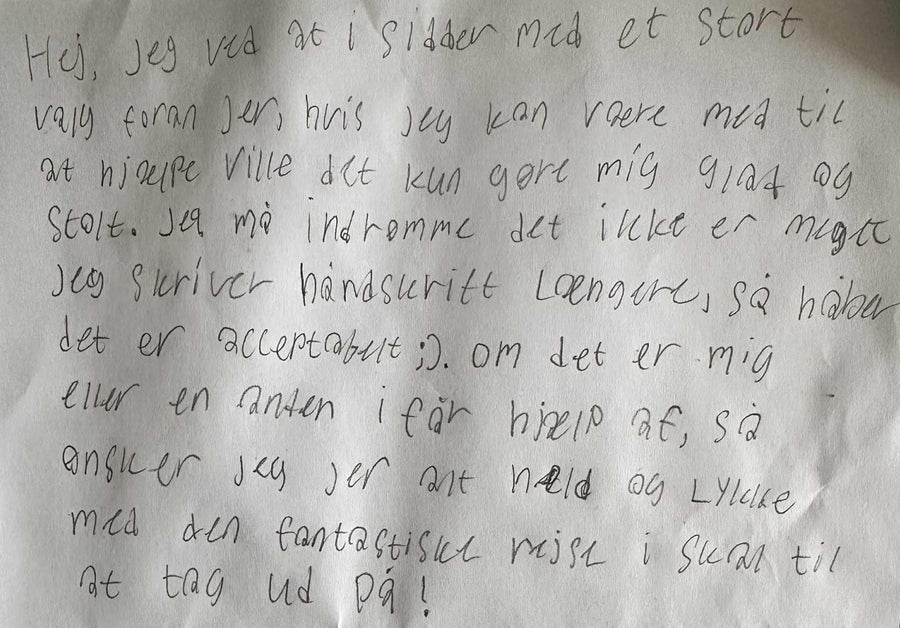 Hej, jeg ved at i sidder med et stort
valg foran jer, hvis jeg kan være med til
at hjælpe ville det kun gøre mig glad og
stolt. Jeg må indrømme det ikke er meget
jeg skriver håndskrift længere, så håber
det er acceptabelt ;). om det er mig
eller en anden i får hjælp af, så
ønsker jeg jer alt held og lykke
med den fantastiske rejse i skal til
at tag ud på!